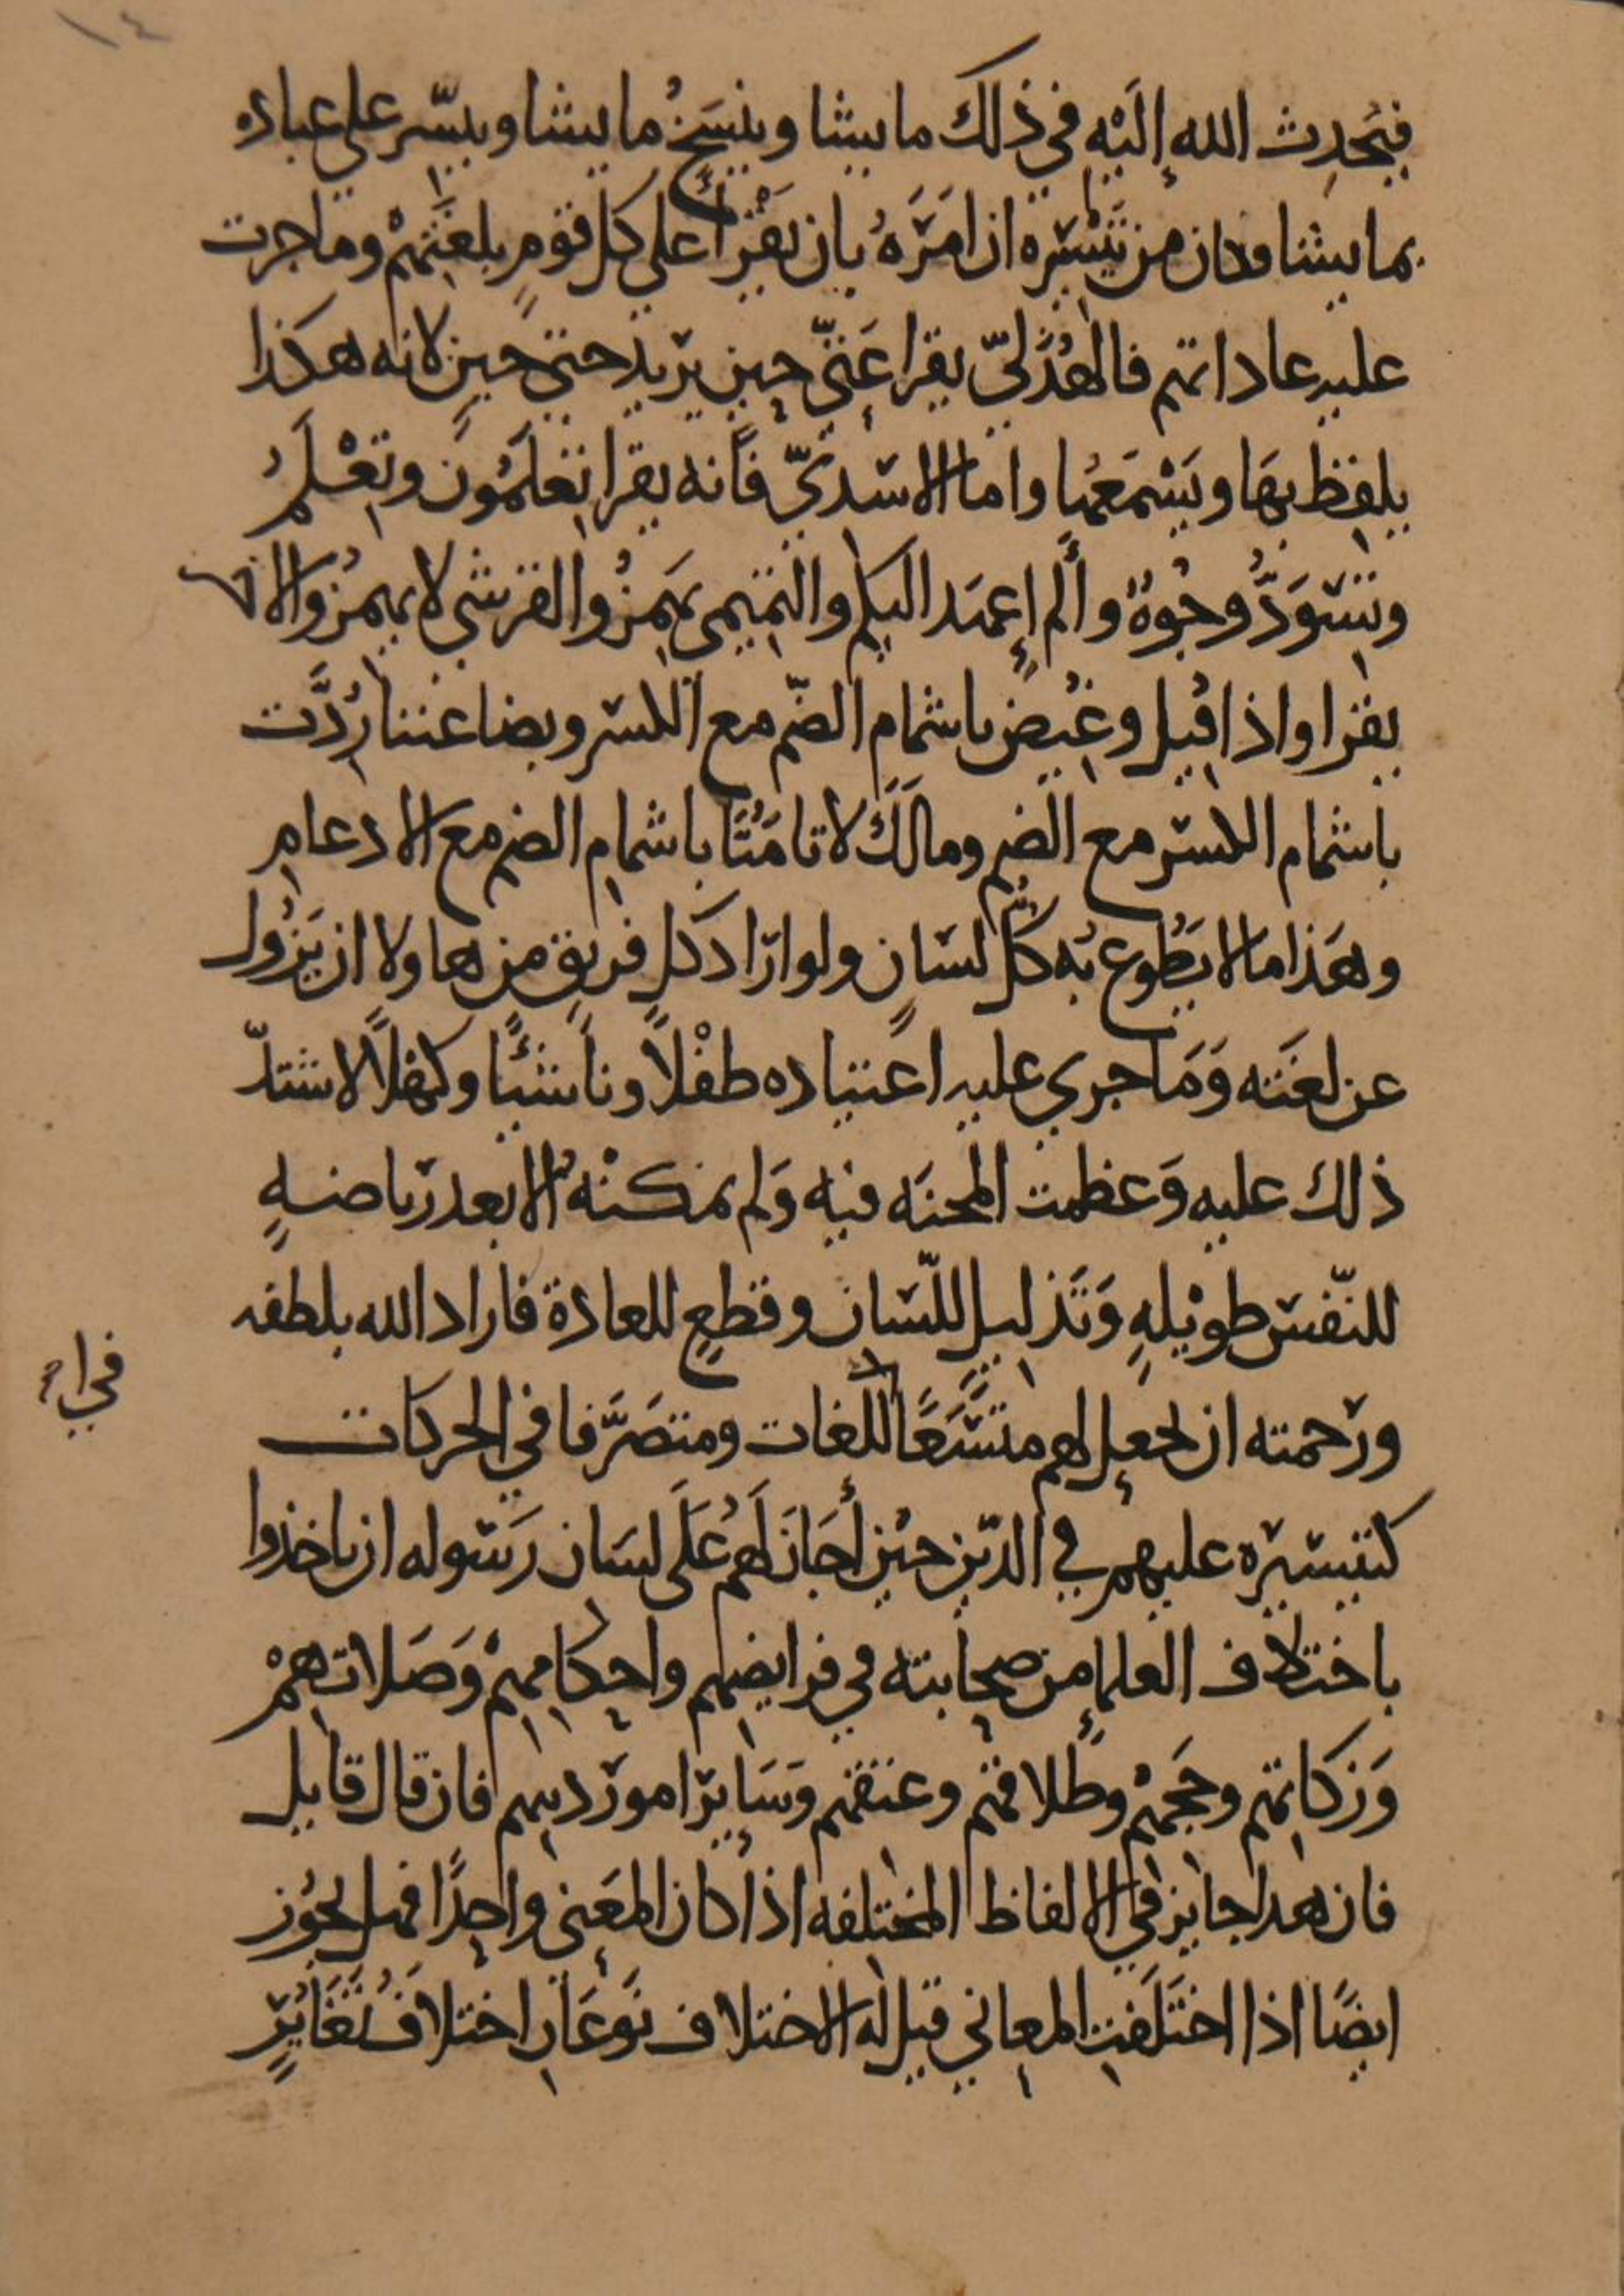 ١٤
فيُحدِث الله إلَيْه في ذلك ما يشا وينسَخُ ما يشا وييسّر على عباده
بما يشا وكان من تَيْسيره ان امَرَهُ بان يَقْرأ على كل قومٍ بلغَتِهمْ وما جرت
عليه عاداتهم فالهُذَليّ يقرا عَتّي حِين يريد حتي حينٍ لانه هكذا
يلفِظ بهَا ويَسْتَمعُها واما الاسَديّ فانه يقرا تِعْلَمُونَ وتِعْلَمُ
وتِسْوَدُّ وجُوهٌ وألم إعهَد اليكم والتميمي يَهمِزُ والقرشي لا يهمزُ والاخر
يقرا واذا قِيل وغُيِض باشمام الضّم مع الكسر وبضاعتنا رُدَّت
باشمام الكسر مع الضم ومالكَ لا تامَنَّا باشمام الضم مع الادغامِ
وهَذا ما لا يَطُوع بُه كلّ لسَانٍ ولو ارَاد كل فريقٍ من هاولا ان يَزُول
عن لغَته وَمَا جري عليه اعتياده طفْلًا وناشئًا وكهْلًا لاشتدّ
ذلك عليه وَعظمت المحنَه فيه وَلم يمكنْهُ الا بعد رياضةٍ
للنّفس طويْلهٍ وَتَذليلٍ للّسَان وقطعٍ للعادة فاراد الله بلطفه
ورَحمته ان يجعل لهم متّسَعًا اللّغات ومتصَرَّفا في الحركات
في اء
كتيسيره عليهم في الدّين حيْن أجَازَ لهُم عَلَى لسَان رَسوله ان ياخذوا
باختلاف العلما من صحابته في فرايضهم واحكامهمْ وَصَلاتهمْ
وَزكاتهم وحَجّهمْ وطلاقهم وعتقهم وسَاير امور دينهم فان قال قايل
فان هذا جايز في الالفاظ المختلفه اذا كان المعَني واحِدًا فهل يجُوز
ايضًا اذا اختَلَفت المعاني قيل له الاختلاف نَوعَان اختلافُ تَغَايُرٍ